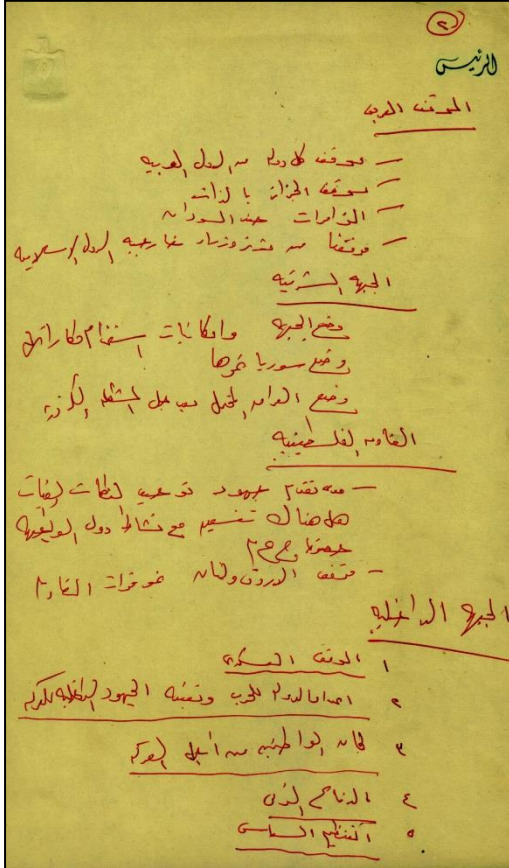 ٢
الرئيس
الموقف العربى
— موقف كل دولة من الدول العربية
— موقف الجزائر بالذات
— المؤامرات ضد السودان
— موقفنا من مؤتمر وزراء خارجية الدول الاسلامية
الجبهه الشرقيه
وضع الجبهه وامكانيات استخدام
وضع سوريا
وضع العراق المحتمل بعد حل المشكله الكردية
المقاومه الفلسطينيه
— مدى تقدم جهود توحيد المنظمات
هل هناك تنسيق مع نشاط دول المواجهه
— موقف الاردن ولبنان نحو قوات المقاومة
الجبهه الداخليه
١ الموقف العسكرى
٢ اعداد الدولة للحرب وتعبئة الجهود الداخليه للمعركه
٣ لجان المواطنين من أجل المعركه
٤ الانتاج
٥ التنظيم السياسى